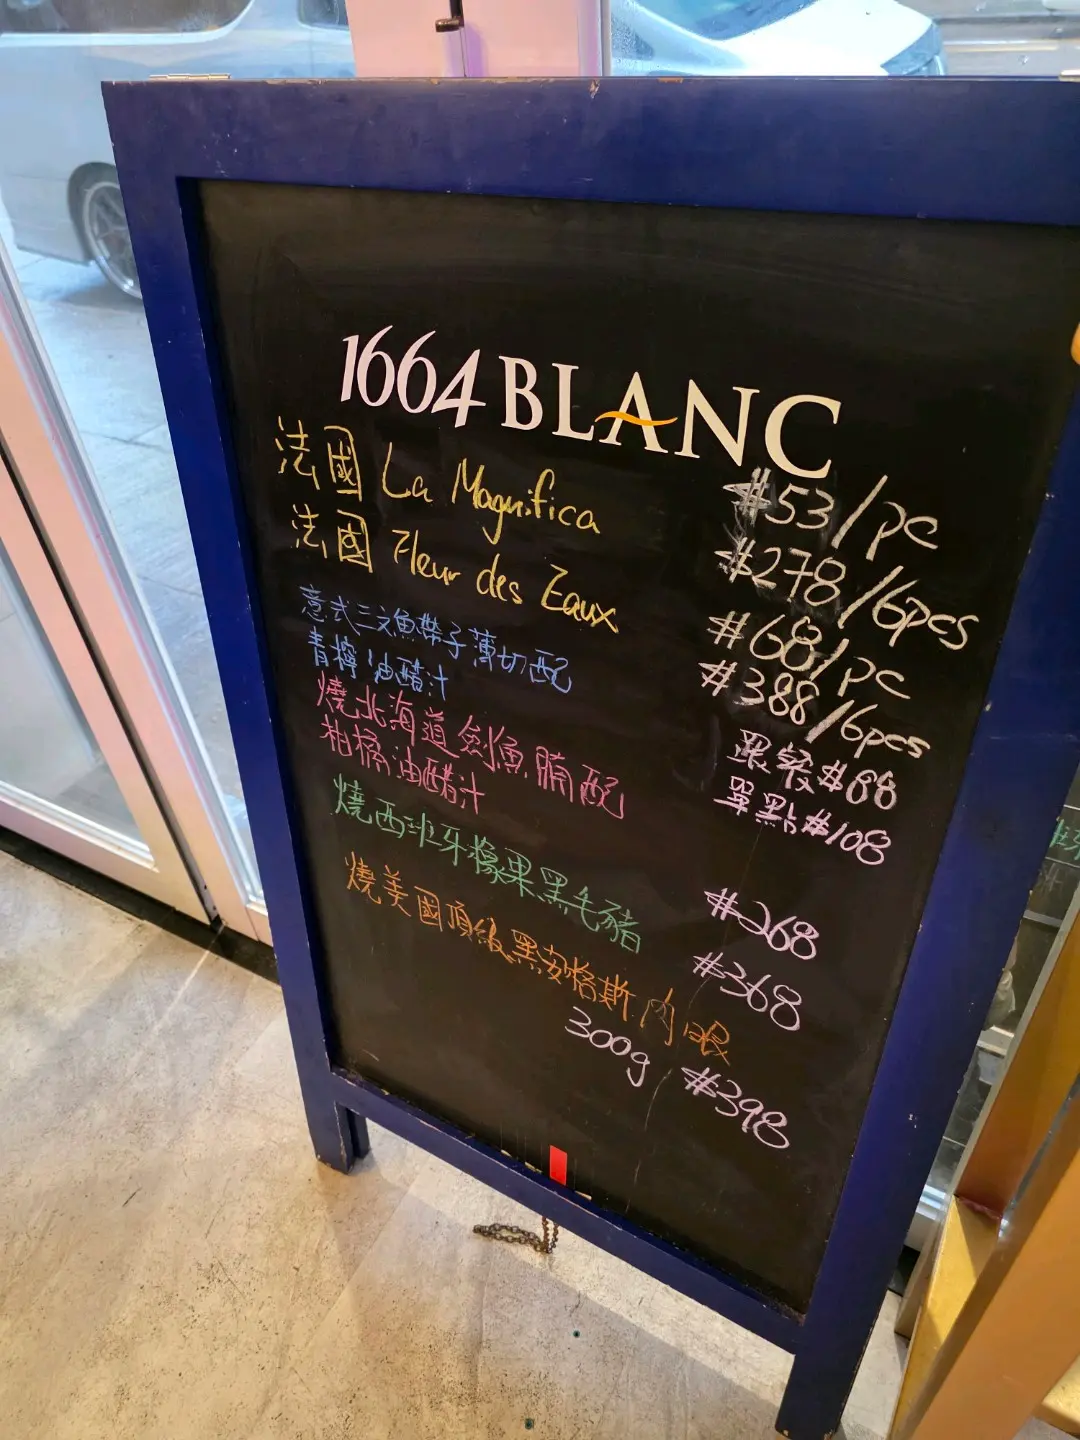 1664 BLANC
法國 La Magnifica $53/pc
$278/6pcs
法國 Fleur des Eaux $68/pc
$388/6pcs
意式三文魚帶子薄切配
青檸油醋汁
跟餐$88
單點$108
燒北海道劍魚腩配
柑橘油醋汁
$268
燒西班牙橡果黑毛豬
$368
燒美國頂級黑安格斯肉眼
300g $398